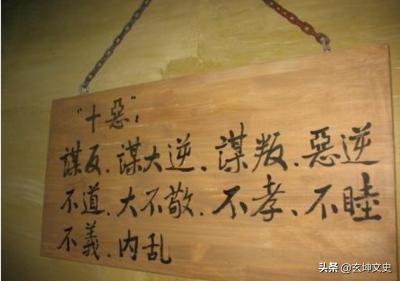 "十惡"：
謀反、謀大逆、謀叛、惡逆
不道、大不敬、不孝、不睦
不義、内乱
头条 @玄坤文史